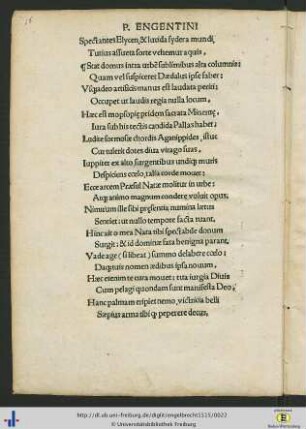 P. ENGENTINI
Spectantes Elycen, & lucida sydera mundi,
Tutius assueta sorte vehemur aquis,
¶ Stat domus intra urbē sublimibus alta columnis:
Quam vel suspiceret Dædalus ipse faber:
Vsqꝫadeo artificis manus est laudata periti:
Occupet ut laudis regia nulla locum,
Hæc est mopsopię pridem sacrata Mineruę,
Iura sub his tectis candida Pallas habet:
Ludite formosæ chordis Aganippides, istuc
Contulerit dotes diua virago suas,
Iuppiter ex alto surgentibus undiqꝫ muris
Despiciens cœlo, talia corde mouet:
Ecce arcem Præsul Natæ molitur in urbe:
Atqꝫ animo magnum condere voluit opus,
Nimirum ille sibi pręsentia numina lætus
Sentiet: ut nullo tempore facta ruant,
Hinc ait o mea Nata tibi spectabile donum
Surgit: & id dominæ fata benigna parant,
Vade age (si libeat) summo delabere cœlo:
Daqꝫ tuis nomen ædibus ipsa nouum,
Hæc etenim te cura mouet: tua iurgia Diuis
Cum pelagi quondam sunt manifesta Deo,
Hanc palmam eripiet nemo, victricia belli
Sæpius arma tibi qꝫ peperere decus,
http://dl.ub.uni-freiburg.de/diglit/engelbrecht1515/0022
© Universitätsbibliothek Freiburg